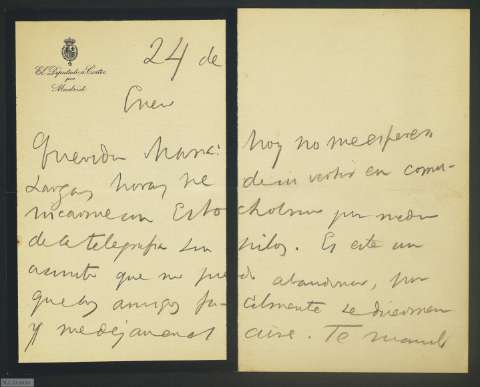 El Diputado a Cortes
por
Madrid
24 de
Enero
Querida hoy no me esperes
Largas horas he de in vertir en comu-
nicarme con Estocholmo por medio
de la telegrafía sin hilos. Es este un
asunto que no puedo abandonar, por
que los amigos fácilmente se
y me dejan en el aire. Te mando